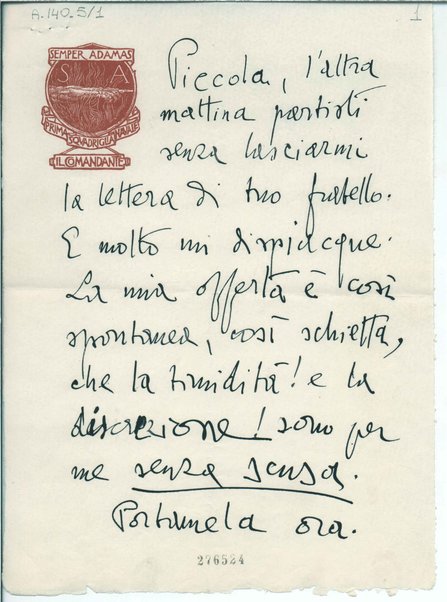 A.140.5/1
1
SEMPER ADAMAS
S A
PRIMA SQUADRIGLIA NAVALE
IL COMANDANTE
Piccola, l'altra
mattina partisti
senza lasciarmi
la lettera di tuo fratello.
E molto mi dispiacque.
La mia offerta è così
spontanea, così schietta,
che la timidità! e la
discrezione! sono per
me senza scusa.
Portamela ora.
276524